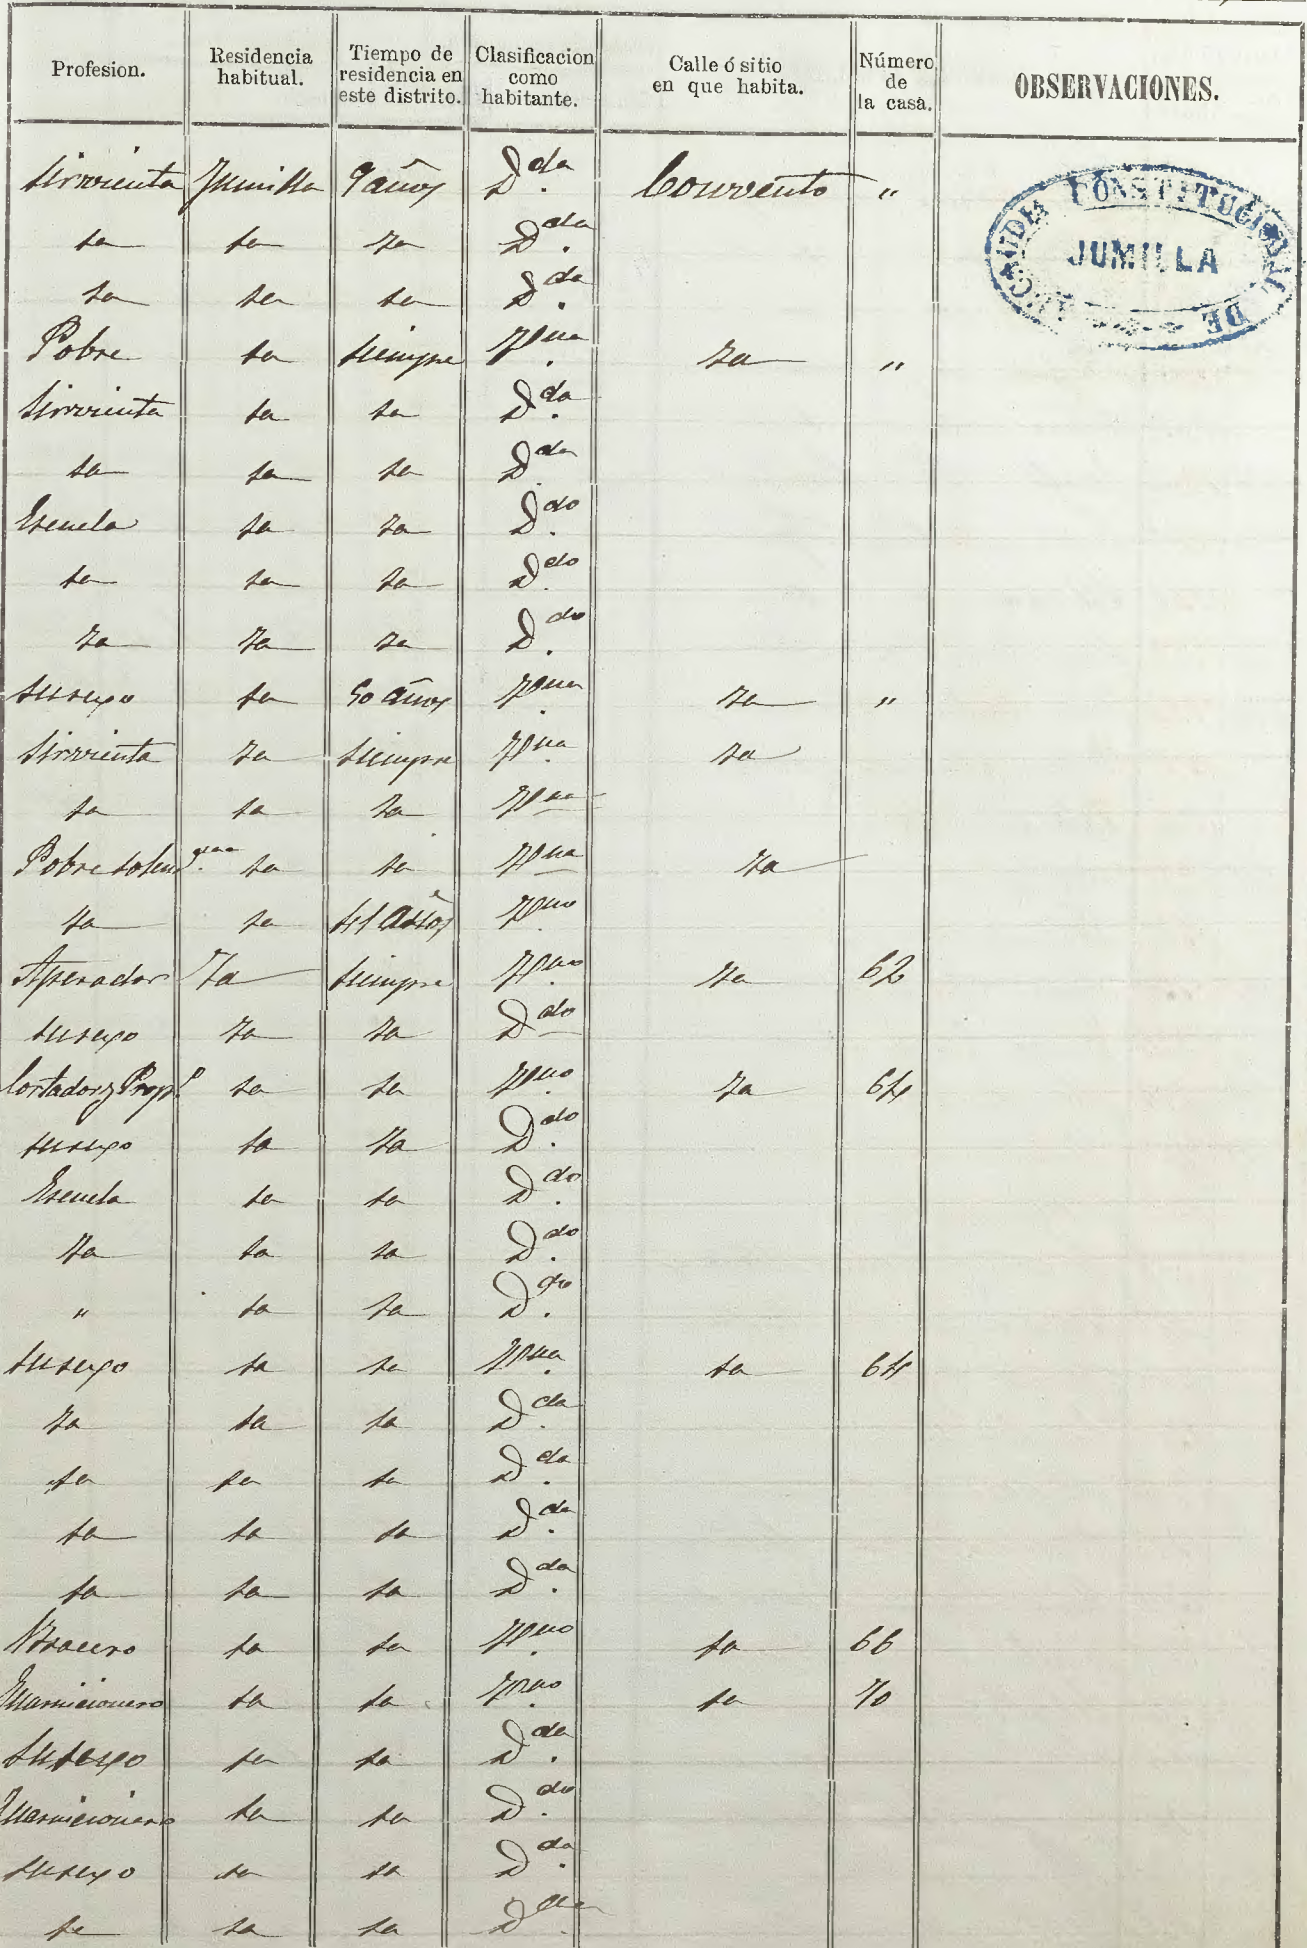 Profesion. Residencia habitual. Tiempo de residencia en este distrito. Clasificacion como habitante. Calle ó sitio en que habita. Número de la casa. OBSERVACIONES.
Sirvienta Jumilla 9 años D.da Convento "
ta ta ta D.da
ta ta ta D.da
Pobre ta siempre ta "
Sirvienta ta ta D.da
ta ta ta D.da
Escuela ta ta D.do
ta ta ta D.do
ta ta ta D.do
su sexo ta 50 años ta "
Sirvienta ta siempre ta
ta ta ta
Pobre ta ta ta
ta ta años
Aperador ta siempre ta 62
su sexo ta ta D.do
Cortador y Prop.o ta ta ta 64
su sexo ta ta D.do
Escuela ta ta D.do
ta ta ta D.do
" ta ta D.do
su sexo ta ta ta 64
ta ta ta D.da
ta ta ta D.da
ta ta ta D.da
ta ta ta D.da
Bracero ta ta ta 66
Guarnicionero ta ta ta 70
su sexo ta ta D.da
Guarnicionero ta ta D.do
su sexo ta ta D.da
ta ta ta D.da
ALCALDIA CONSTITUCIONAL DE
JUMILLA